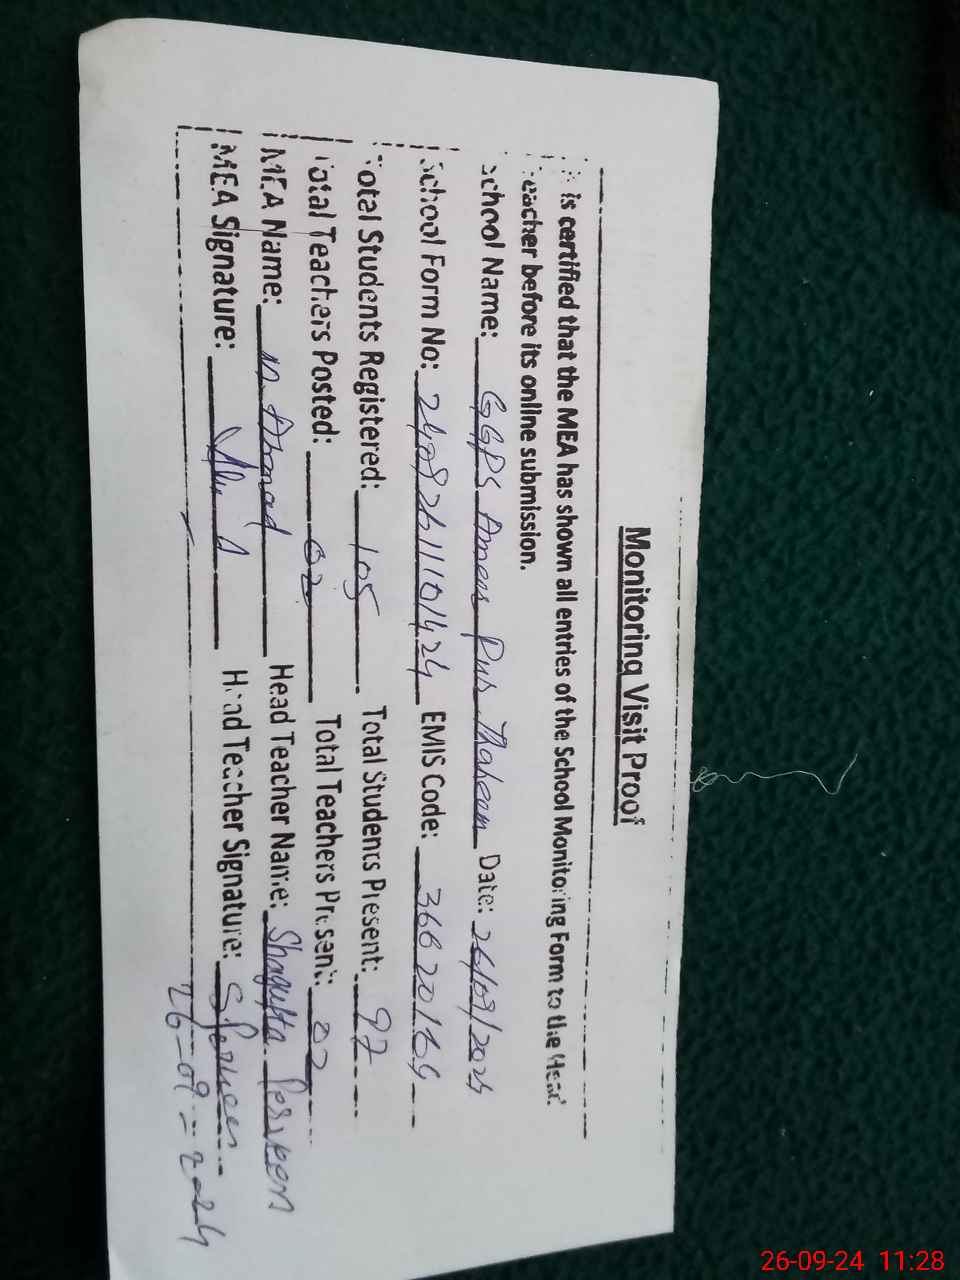 Monitoring Visit Proof
It is certified that the MEA has shown all entries of the School Monitoring Form to the Head
Teacher before its online submission.
School Name: GGPS Ameer Pur Thaheem Date: 26/09/2024
School Form No: 24092611101424 EMIS Code: 36620164
Total Students Registered: 105 Total Students Present: 97
Total Teachers Posted: 02 Total Teachers Present: 02
MEA Name: M. Ahmad Head Teacher Name: Shagufta Perveen
MEA Signature: Head Teacher Signature: S Perveen
26-09-2024
26-09-24 11:28